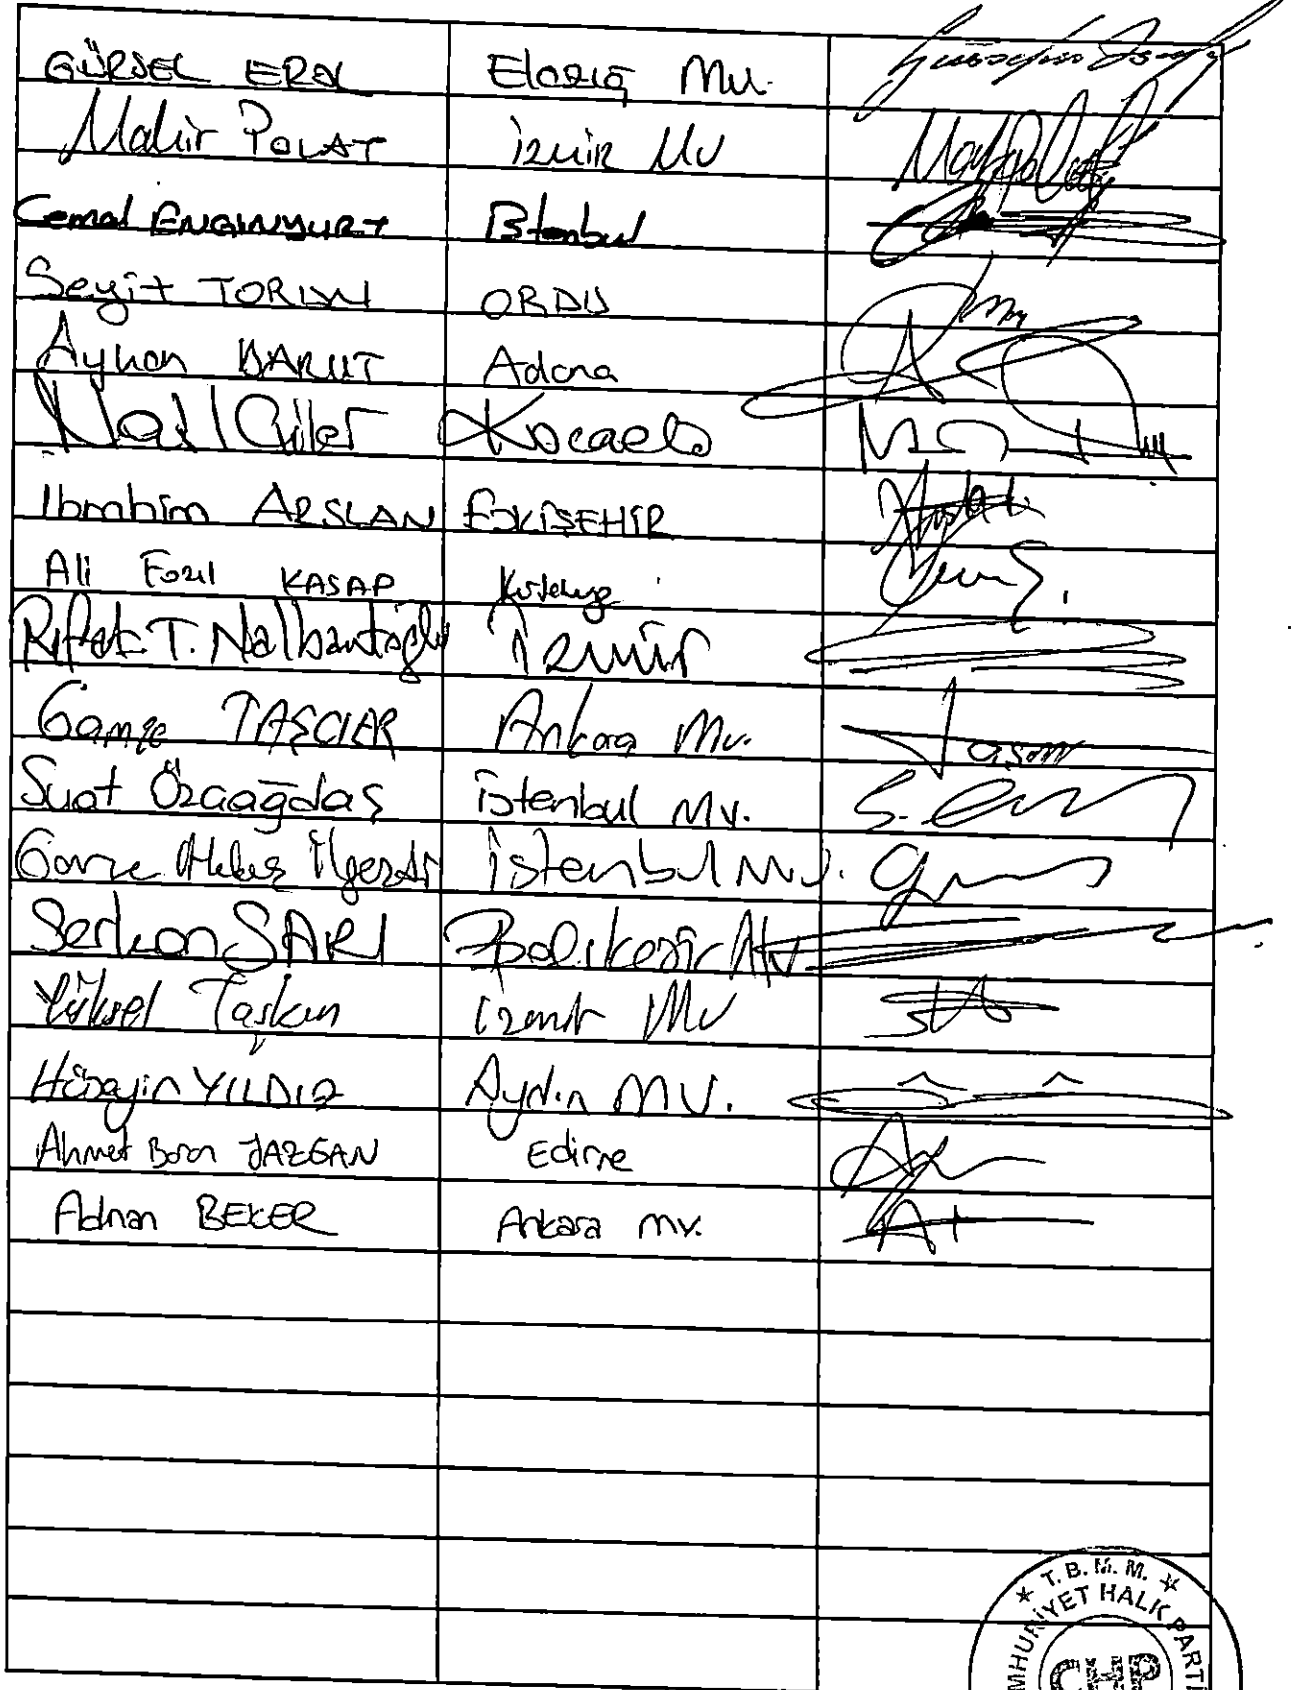 GÜRSEL EROL Elazığ Mv.
Mahir POLAT İzmir Mv
Cemal ENGİNYURT İstanbul
Seyit TORUN ORDU
Ayhan BARUT Adana
Nail Çiler Kocaeli
İbrahim ARSLAN ESKİŞEHİR
Ali Fazıl KASAP Kütahya
Rıfat T. Nalbantoğlu İzmir
Gamze TAŞCIER Ankara Mv.
Suat Özçağdaş İstanbul Mv.
Gamze Akkuş İlgezdi İstanbul Mv.
Serkan SARI Balıkesir Mv
Yüksel Taşkın İzmir Mv
Hüseyin YILDIZ Aydın MV.
Ahmet Baran YAZGAN Edirne
Adnan BEKER Ankara mv.
T.B.M.M.
MHURİYET HALK PARTİ
CHP